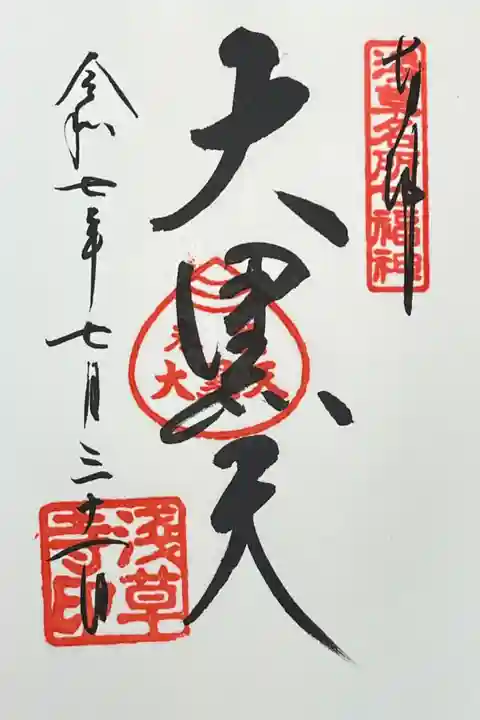 奉拝
浅草名所七福神
大黒天
令和七年七月三十一日
浅草
寺印